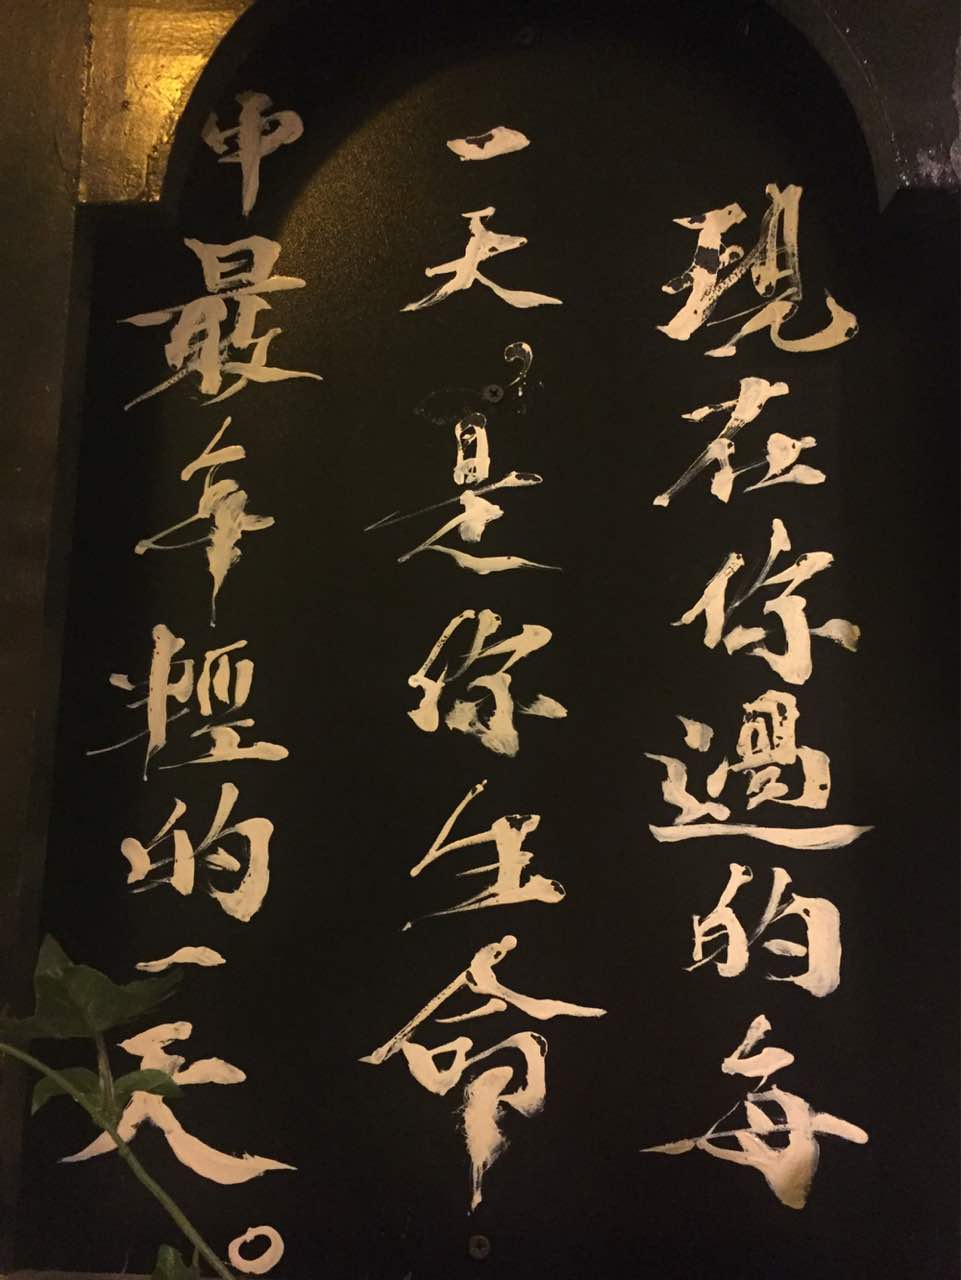 現在你過的每
一天,是你生命
中最年輕的一天。